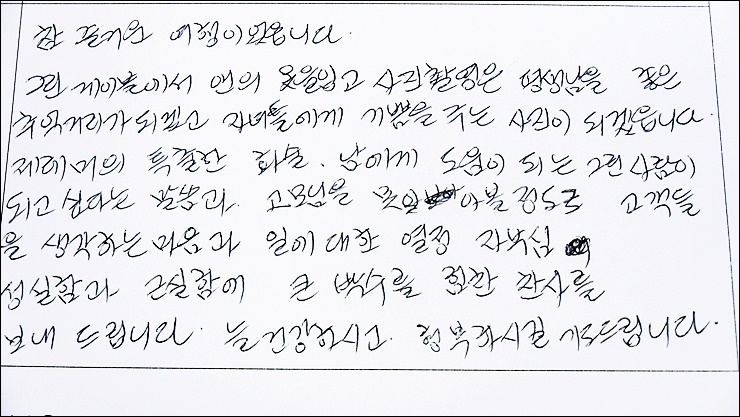 참 즐거운 여행이었읍니다.
그린 게이블에서 앤의 옷을입고 사진촬영은 평생남을 좋은
추억거리가되겠고 자녀들에게 기쁨을 주는 사진이 되겠읍니다
제레미의 특출한 화술. 남에게 도움이 되는 그런사람이
되고싶다는 말씀과. 고모님을 못 정도로 고객들
을 생각하는마음과 일에대한 열정 자부심
성실함과 근실함에 큰 박수를 힘찬 찬사를
보내 드립니다. 늘건강하시고. 행복하시길 기도드립니다.